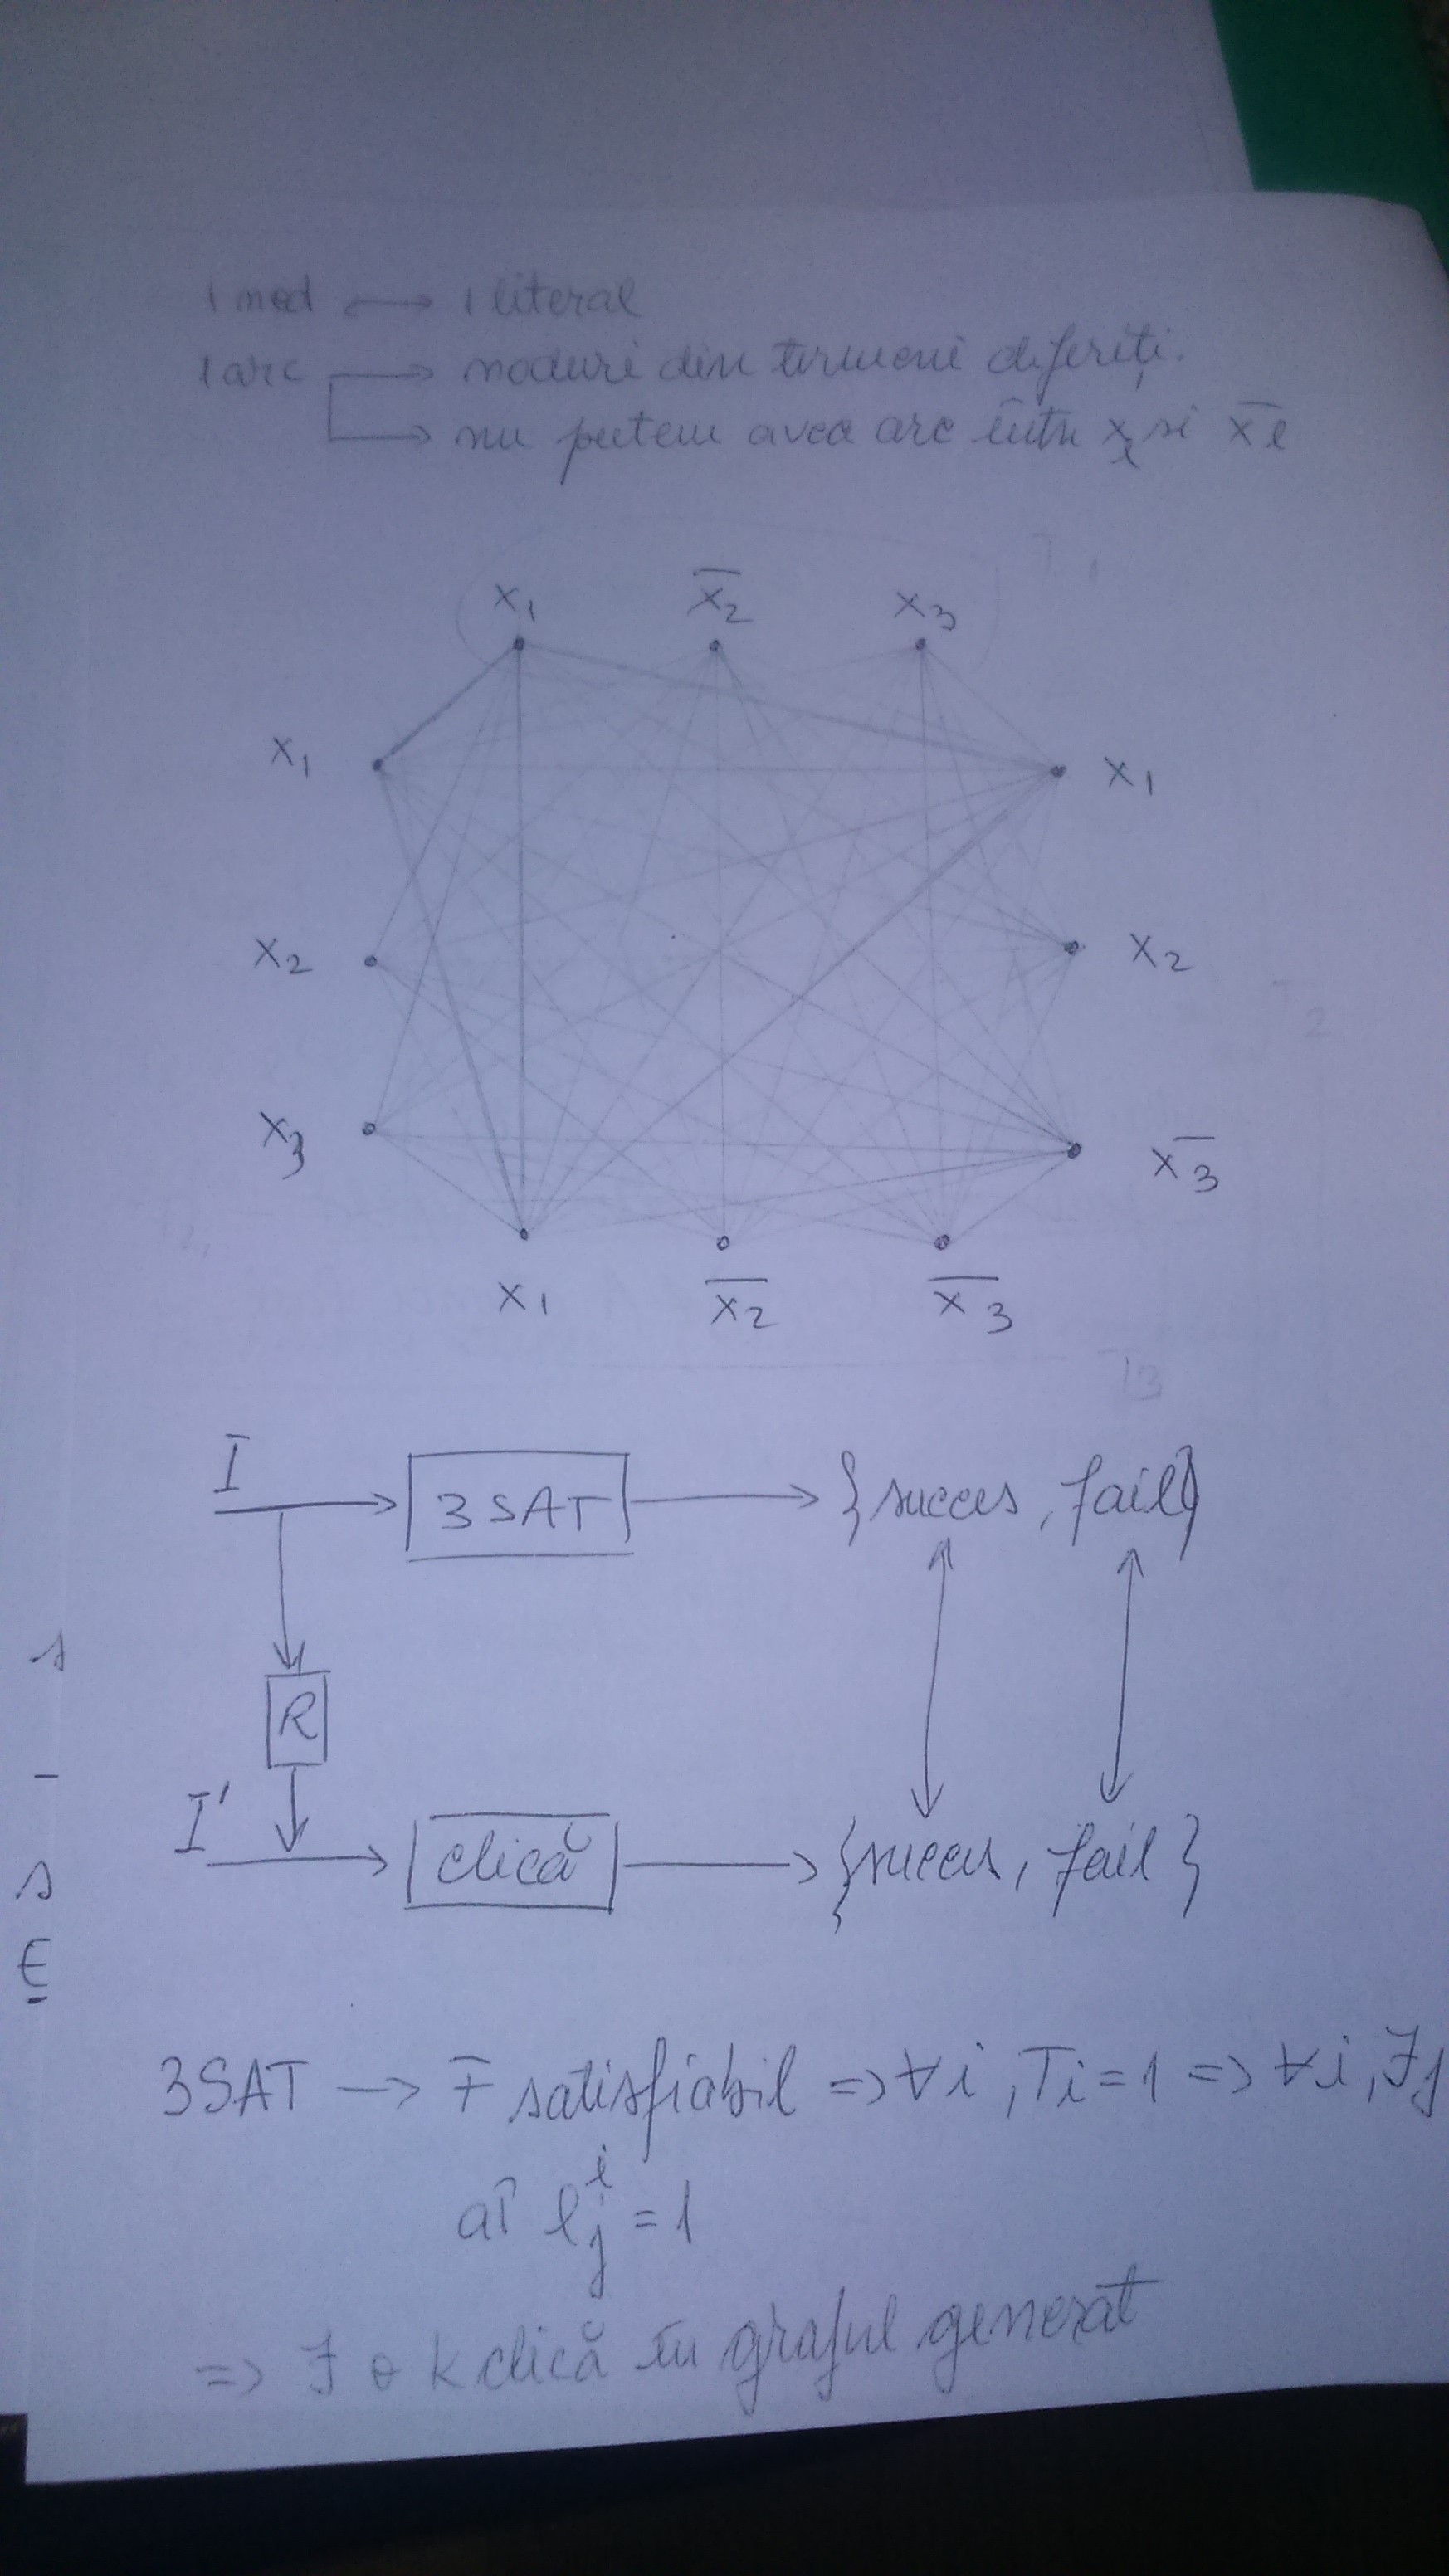 1 nod → 1 literal
1 arc → noduri din termeni diferiți.
→ nu putem avea arc între xᵢ si x̅ᵢ
T1
x₁ x̅₂ x₃
x₁ x₁
x₂ x₂
T2
x₃ x̅₃
x₁ x̅₂ x̅₃
T3
I → 3SAT → {succes, fail}
R
I' → clică → {succes, fail}
3SAT → F satisfiabil => ∀i, Ti = 1 => ∀i, ∃j
aî lⱼⁱ = 1
=> ∃ o k clică în graful generat